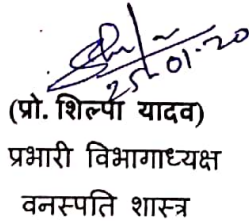 25-01-20
(प्रो. शिल्पा यादव)
प्रभारी विभागाध्यक्ष
वनस्पति शास्त्र